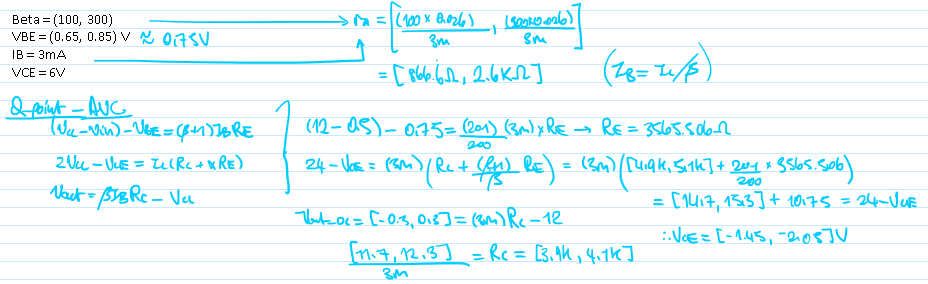 Beta = (100, 300)
VBE = (0.65, 0.85) V ≈ 0.75V
IB = 3mA
VCE = 6V
rπ = [(100 × 0.026)/3m , (300×0.026)/3m]
= [866.6Ω, 2.6KΩ] (IB = Ic/β)
Q-point - AVC
(Vcc - Vin) - VBE = (β+1) IB RE
2Vcc - VCE = Ic (Rc + α RE)
Vout = β IB Rc - Vcc
(12 - 0.5) - 0.75 = (201)/200 (3m) × RE → RE = 3565.506Ω
24 - VCE = (3m) (Rc + (β+1)/β RE) = (3m) ([4.9K, 5.1K] + 201/200 × 3565.506)
= [14.7, 15.3] + 10.75 = 24 - VCE
∴ VCE = [-1.45, -2.05] V
Vout-DC = [-0.3, 0.3] = (3m) Rc - 12
[11.7, 12.3]/3m = Rc = [3.9K, 4.1K]